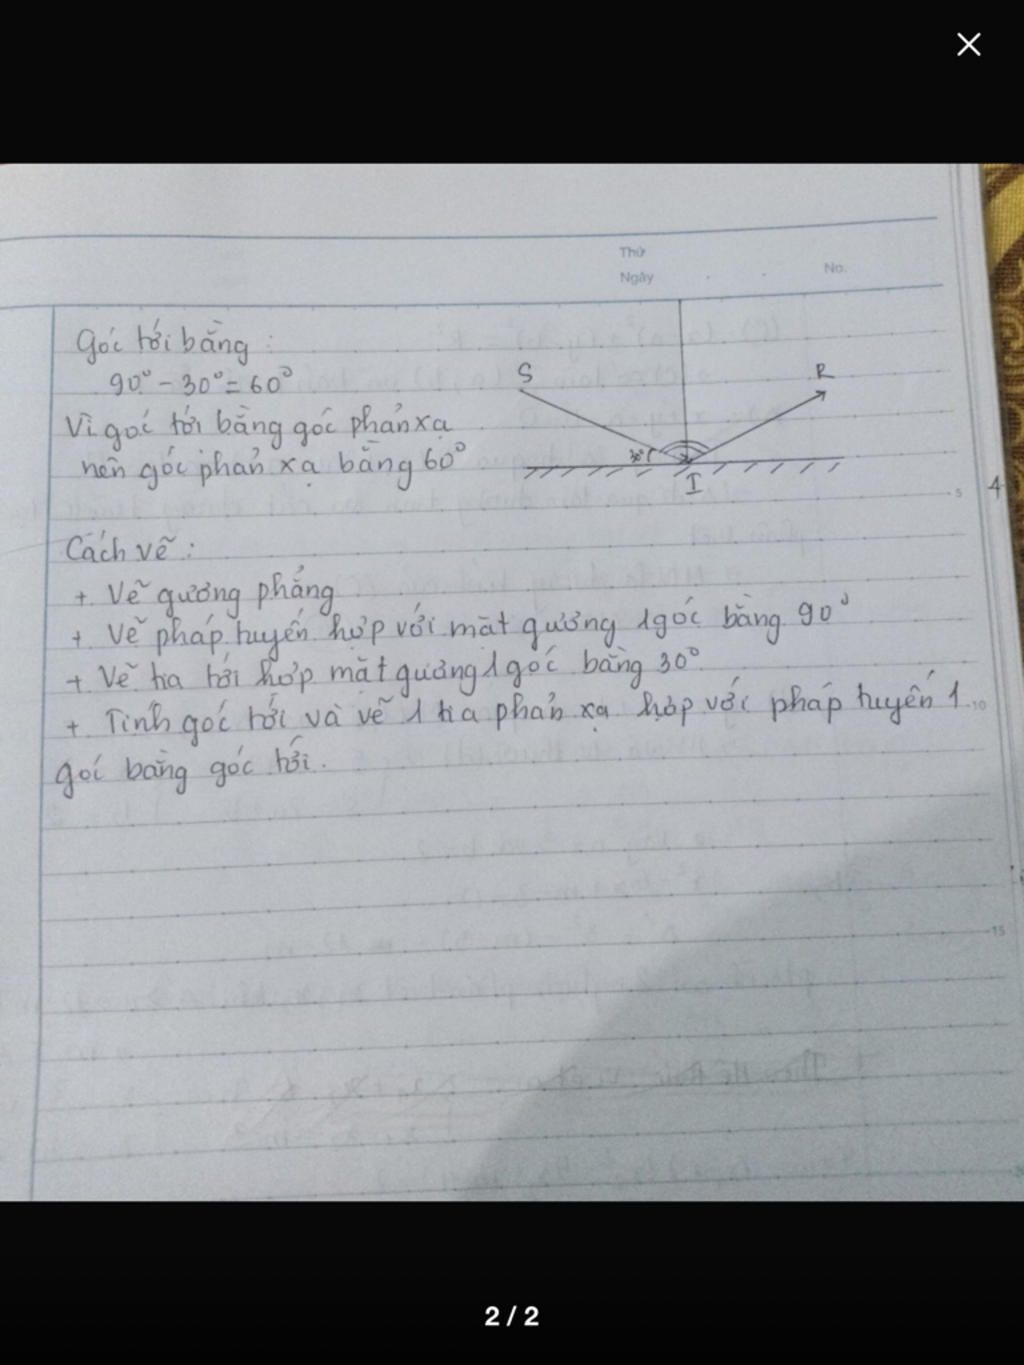 Thứ
Ngày
No.
Góc tới bằng:
90° - 30° = 60°
Vì góc tới bằng góc phản xạ
nên góc phản xạ bằng 60°
S
R
30°
I
5
4
Cách vẽ:
+ Vẽ gương phẳng
+ Vẽ pháp tuyến hợp với mặt gương 1 góc bằng 90°
+ Vẽ tia tới hợp mặt gương 1 góc bằng 30°
+ Tính góc tới và vẽ 1 tia phản xạ hợp với pháp tuyến 1
10
góc bằng góc tới.
15
2 / 2